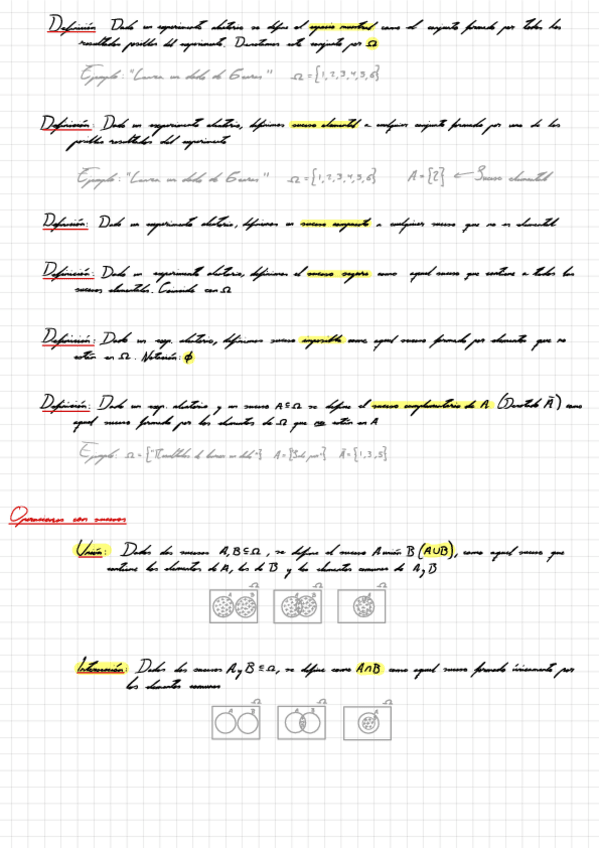 Definición: Dado un experimento aleatorio se define el espacio muestral como el conjunto formado por todos los
resultados posibles del experimento. Denotamos este conjunto por Ω
Ejemplo: "Lanzar un dado de 6 caras" Ω={1,2,3,4,5,6}
Definición: Dado un experimento aleatorio, definimos suceso elemental a cualquier conjunto formado por uno de los
posibles resultados del experimento
Ejemplo: "Lanzar un dado de 6 caras" Ω={1,2,3,4,5,6} A={2} ← Suceso elemental
Definición: Dado un experimento aleatorio, definimos un suceso compuesto a cualquier suceso que no es elemental
Definición: Dado un experimento aleatorio, definimos el suceso seguro como aquel suceso que contiene a todos los
sucesos elementales. Coincide con Ω
Definición: Dado un exp. aleatorio, definimos suceso imposible como aquel suceso formado por elementos que no
están en Ω. Notación: ϕ
Definición: Dado un exp. aleatorio y un suceso A⊆Ω se define el suceso complementario de A (Denotado Ā) como
aquel suceso formado por los elementos de Ω que no están en A
Ejemplo: Ω={"Resultados de lanzar un dado"} A={Sale par} Ā={1,3,5}
Operaciones con sucesos
Unión: Dados dos sucesos A,B⊆Ω, se define el suceso A unión B (A∪B), como aquel suceso que
contiene los elementos de A, los de B y los elementos comunes de A y B
Ω Ω Ω
A B A B
Intersección: Dados dos sucesos A y B⊆Ω, se define como A∩B como aquel suceso formado únicamente por
los elementos comunes
Ω Ω Ω
A B A B